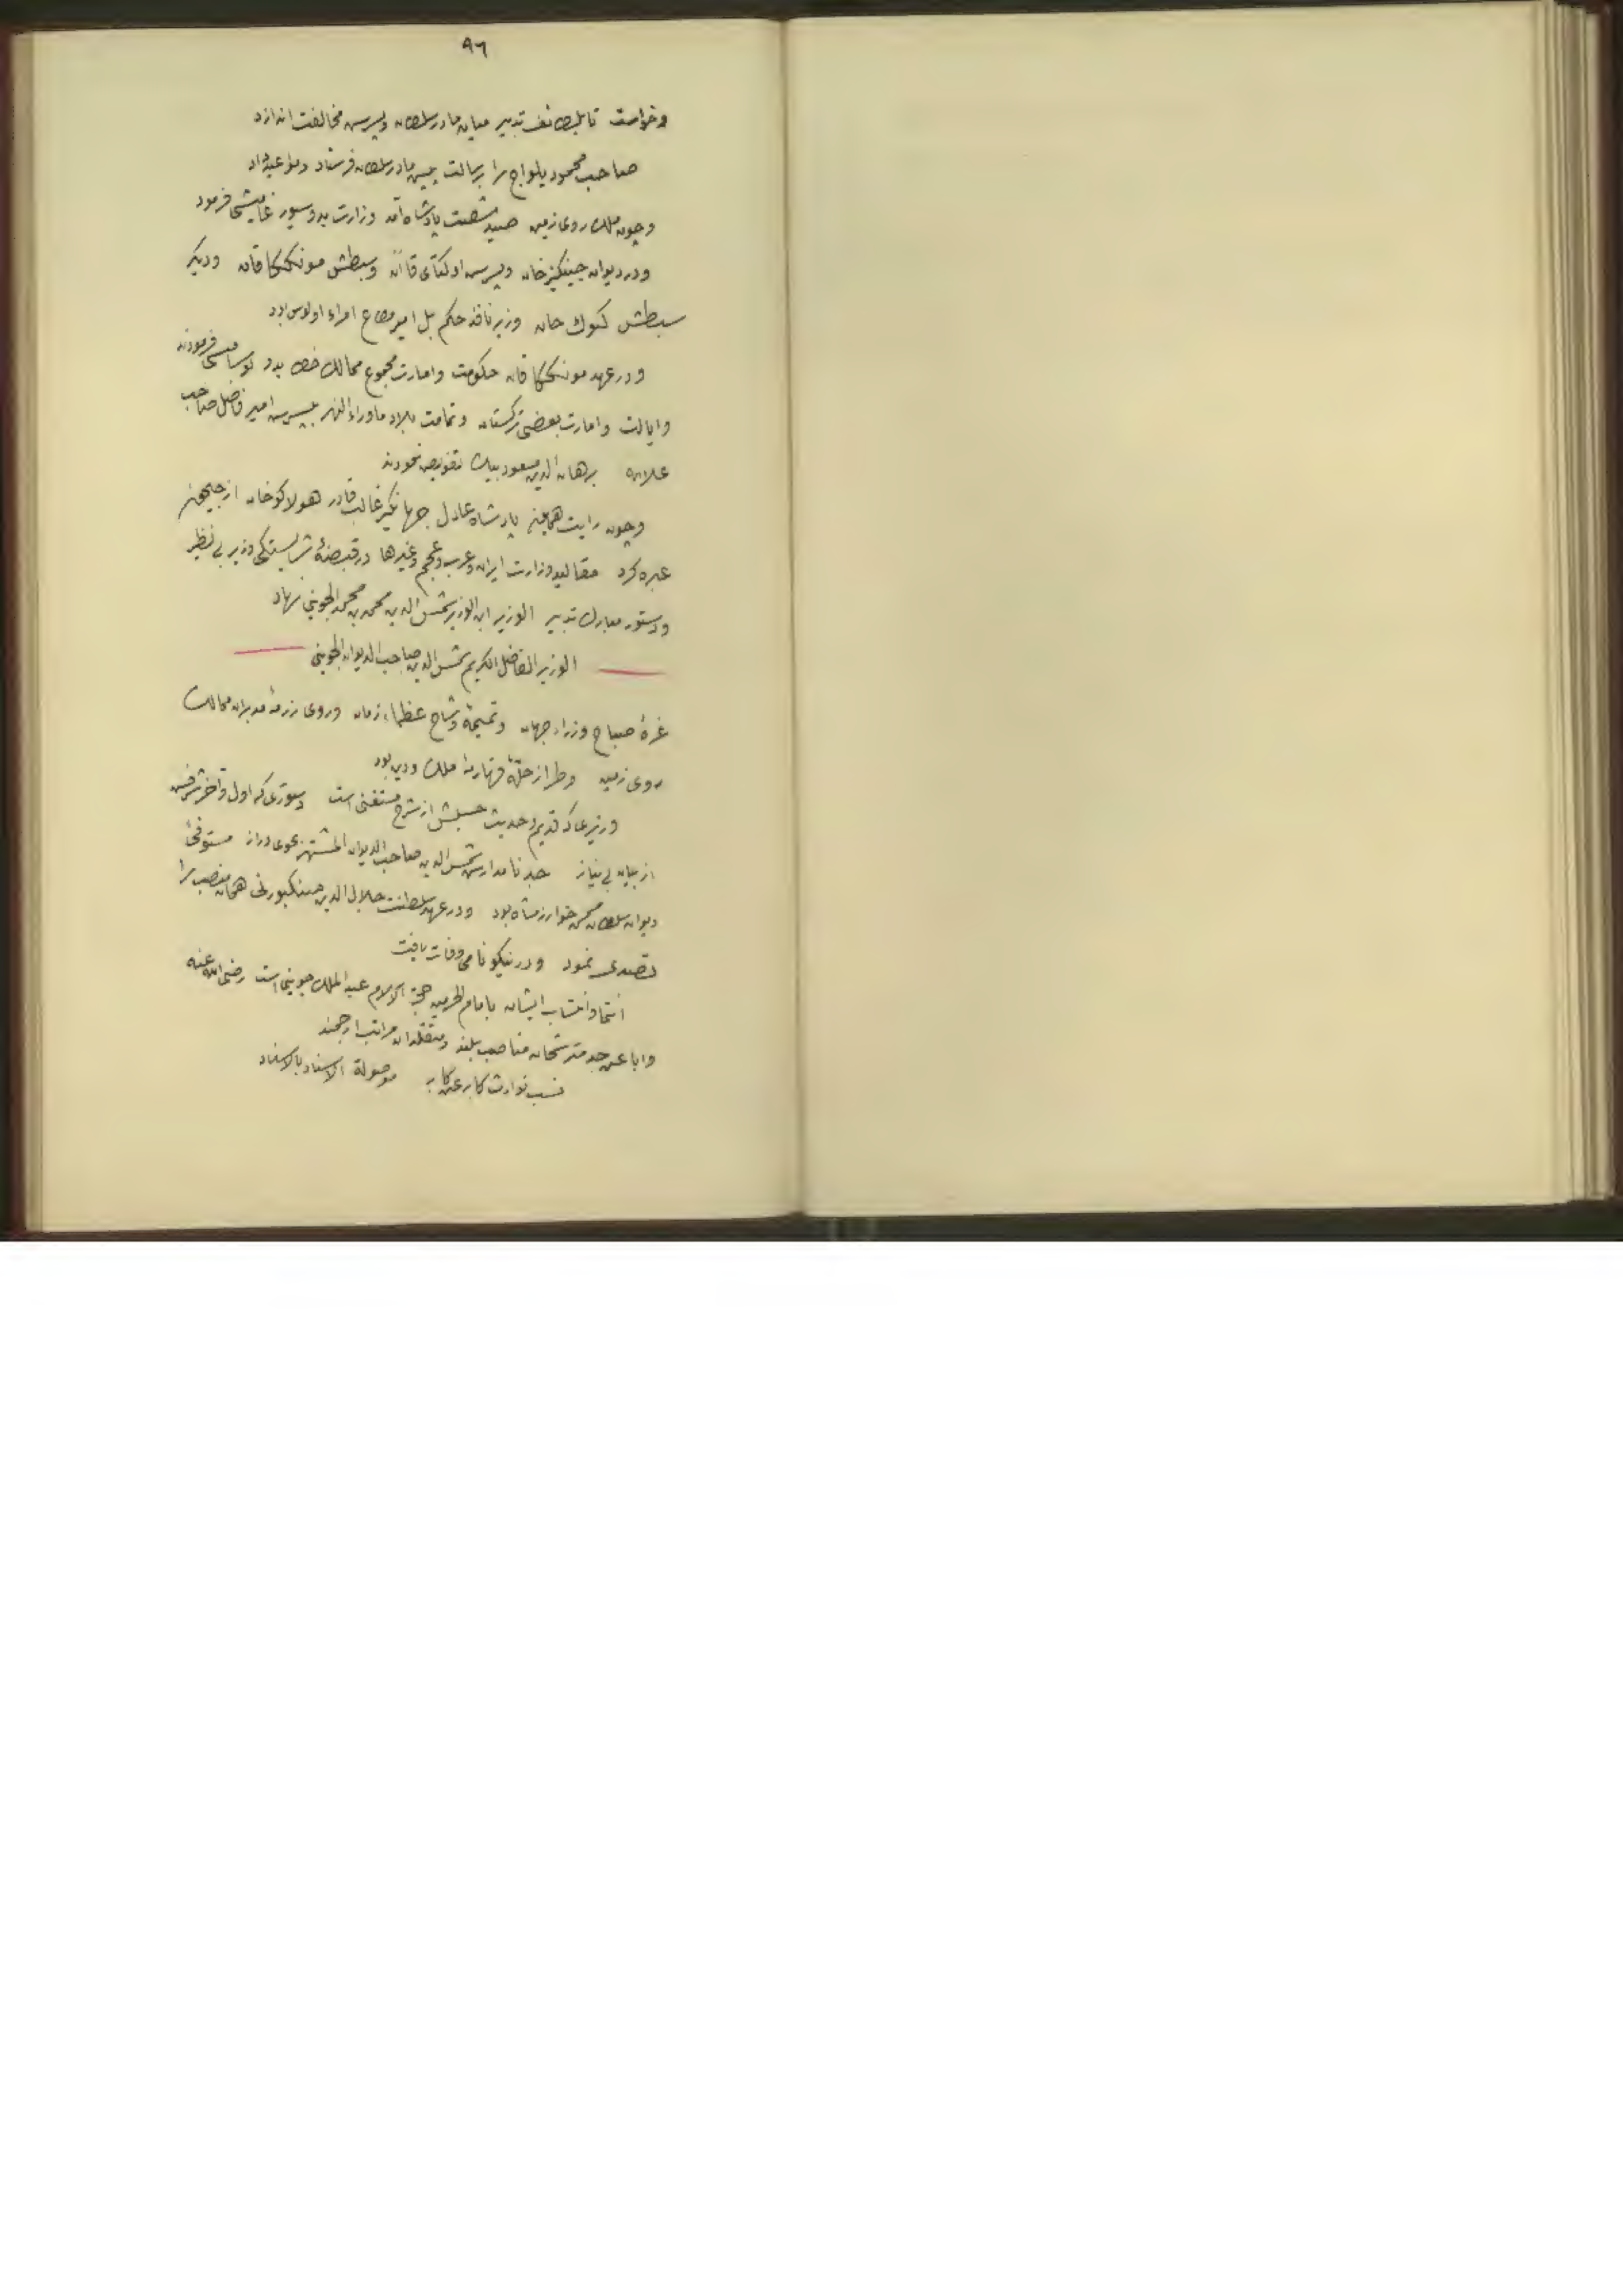 ٩٦
وخواست تا بلطائف تدبیر میان مادر سلطان وپسرش مخالفت اندازد
صاحب محمود یلواج را برسالت پیش مادر سلطان فرستاد ومواعید داد
وچون ملک روی زمین صید شصت پادشاه آمد وزارت بدو سیورغامیشی فرمود
ودر دیوان جینکیز خان وپسرش اوکتای قاآن وسبطش مونککا قاآن ودیکر
سبطش کیوک خان وزیر نافذ حکم بل امیر مطاع امراء اولوس بود
ودر عهد مونککا قاآن حکومت وامارت مجموع ممالک خطا بدو فرمودند
وایالت وامارت بعضی ترکستان وتمامت بلاد ماوراء النهر بپسرش امیر فاضل صاحب
علامه برهان الدین مسعود بیک تفویض نمودند
وچون رایت همایون پادشاه عادل جهانکیر غالب قادر هولاکو خان از جیحون
عبره کرد مقالید وزارت ایران وعرب وعجم وغیرها در قبضهٔ شایستکی وزیر بی نظیر
ودستور مبارک تدبیر الوزیر ابن الوزیر شمس الدین محمد بن محمد الجوینی نهاد
الوزیر الفاضل الکریم شمس الدین صاحب الدیوان الجوینی
غرهٔ صباح وزراء جهان وتمیمهٔ وشاح عظماء زمان وروی رزمهٔ مدبران ممالک
روی زمین وطراز حلّهٔ قهارمهٔ ملک ودین بود
وزیری که قدیم وحدیث حسبش از شرح مستغنی است دستوری که اول وآخر شرفش
از بیان بی نیاز جد نامدارش شمس الدین صاحب الدیوان المشتهر بموی دراز مستوفیٔ
دیوان سلطان محمد خوارزمشاه بود ودر عهد سلطنت جلال الدین مینکبورنی همان منصب را
تصدی نمود ودر نیکونامی وفات یافت
انتما وانتساب ایشان بامام الحرمین حجة الاسلام عبد الملک جوینی است رضی الله عنه
وابا عن جد مترشحان مناصب بلند ومتقلدان مراتب ارجمند
نسب توارث کابر عن کابر موصولة الاسناد بالاسناد